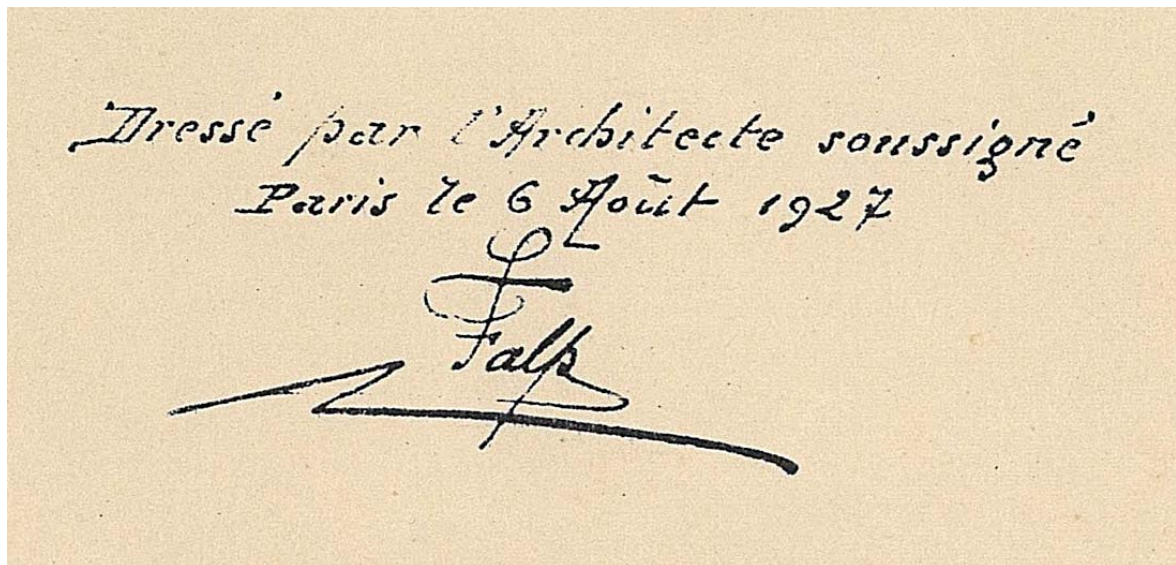 Dressé par l'Architecte soussigné
Paris le 6 Août 1927
Falp